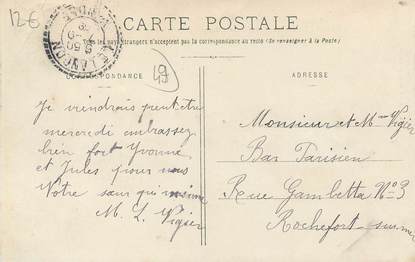 12€
CARTE POSTALE
pays étrangers n'acceptent pas la correspondance au recto (Se renseigner à la Poste)
CORRESPONDANCE
ADRESSE
Je viendrais peut être
mercredi embrassez
bien fort Yvonne
et Jules pour nous
Votre sœur qui
M. L. Vigier
Monsieur et Mme Vigier
Bar Parisien
Rue Gambetta No 3
Rochefort sur mer